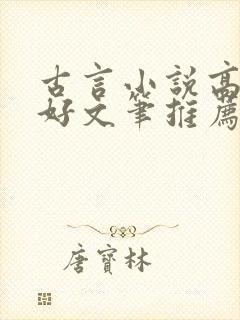 古言小說高
好文筆推薦
唐寶林